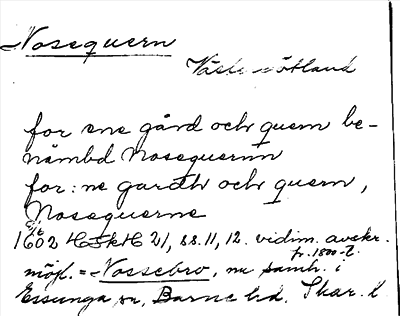 Nosequern
Västergötland
for ene gård och quern be-
nämbd Nosequernn
for:ne gardh och quern,
Nosequerne
1602 HSkH 21, ss. 11, 12. vidim. avskr.
fr. 1800-t.
möjl. = Nossebro, nu samh. i
Essunga sn, Barne hd. Skar. l.